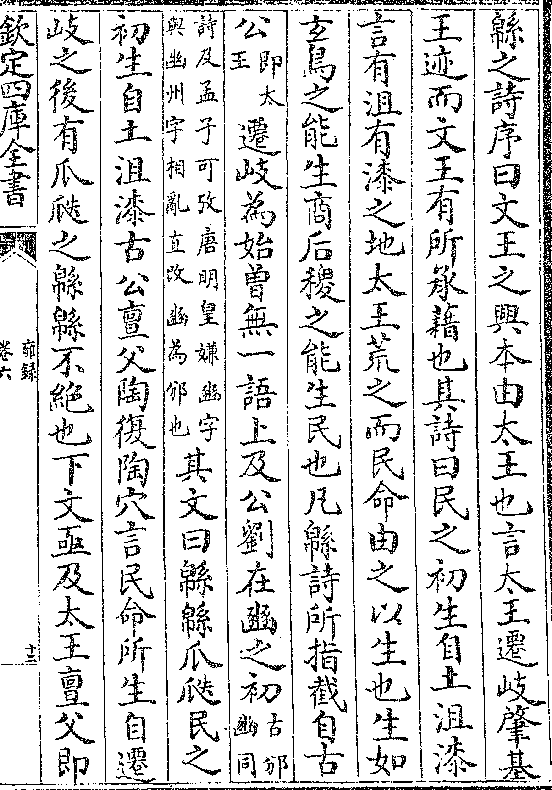 緜之詩序曰文王之興本由太王也言太王遷岐肇基
王迹而文王有所承藉也其詩曰民之初生自土沮漆
言有沮有漆之地太王荒之而民命由之以生也生如
玄鳥之能生商后稷之能生民也凡緜詩所指截自古
公即太王遷岐為始曾無一語上及公劉在豳之初古邠豳同
詩及孟子可攷唐明皇嫌豳字與幽州字相亂直改豳為邠也其文曰緜緜瓜瓞民之
初生自土沮漆古公亶父陶復陶穴言民命所生自遷
岐之後有瓜瓞之緜緜不絶也下文亟及太王亶父即
欽定四庫全書
雍録
卷六
十三